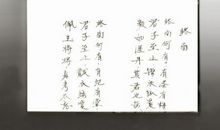 終南
終南何有有條有梅
君子至止錦衣狐裘
顏如渥丹其君也哉
終南何有有紀有堂
君子至止黻衣繡裳
佩玉將將壽考不忘